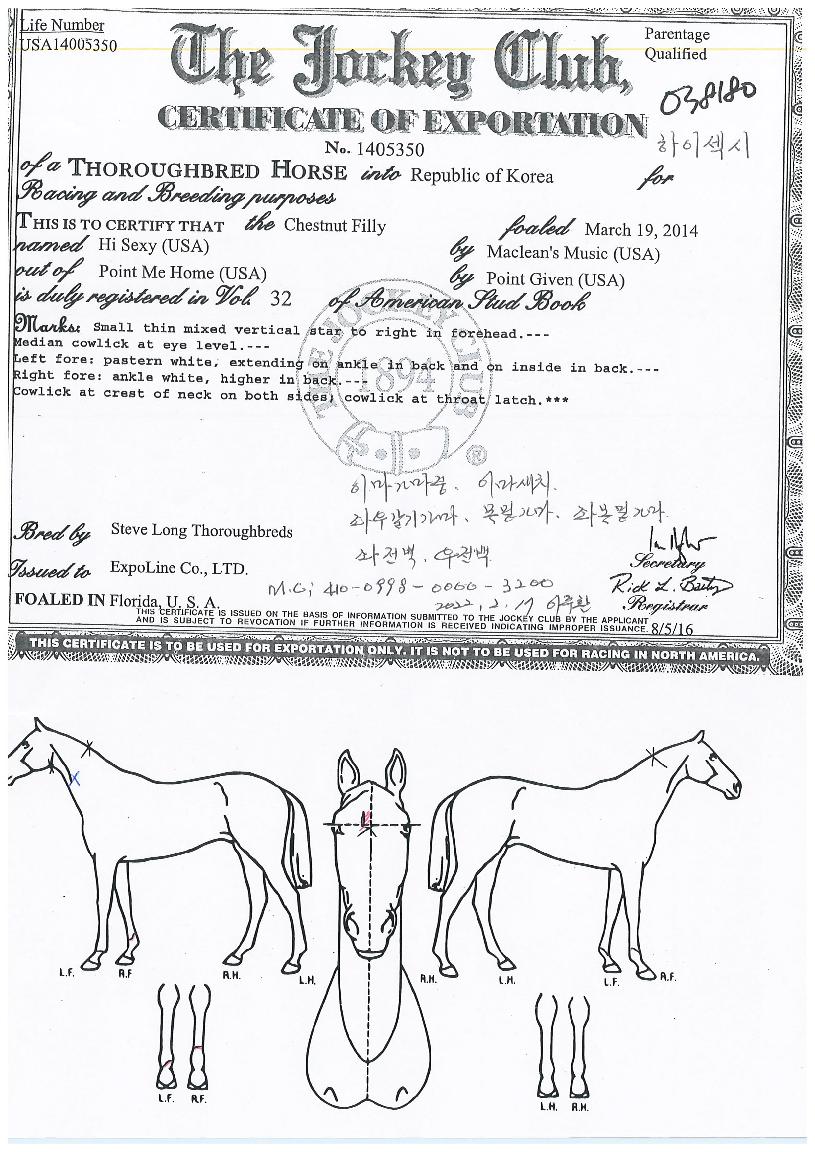 Life Number
USA14005350
Parentage
Qualified
The Jockey Club,
038180
CERTIFICATE OF EXPORTATION
하이섹시
No. 1405350
of a THOROUGHBRED HORSE into Republic of Korea for
Racing and Breeding purposes
THIS IS TO CERTIFY THAT the Chestnut Filly foaled March 19, 2014
named Hi Sexy (USA) by Maclean's Music (USA)
out of Point Me Home (USA) by Point Given (USA)
is duly registered in Vol. 32 of American Stud Book
Marks: Small thin mixed vertical star to right in forehead.---
Median cowlick at eye level.---
Left fore: pastern white, extending on ankle in back and on inside in back.---
Right fore: ankle white, higher in back.---
Cowlick at crest of neck on both sides; cowlick at throat latch.***
THE JOCKEY CLUB
1894
®
이마가마중. 이마새치.
좌전백. 우전백
Bred by Steve Long Thoroughbreds
Secretary
Issued to ExpoLine Co., LTD.
M.C; 410-0998-0000-3200
Registrar
FOALED IN Florida, U. S. A.
2022, 2. 17
THIS CERTIFICATE IS ISSUED ON THE BASIS OF INFORMATION SUBMITTED TO THE JOCKEY CLUB BY THE APPLICANT
AND IS SUBJECT TO REVOCATION IF FURTHER INFORMATION IS RECEIVED INDICATING IMPROPER ISSUANCE. 8/5/16
THIS CERTIFICATE IS TO BE USED FOR EXPORTATION ONLY. IT IS NOT TO BE USED FOR RACING IN NORTH AMERICA.
L.F. R.F R.H. L.H. R.H. L.H. L.F. R.F.
L.F. R.F. L.H. R.H.